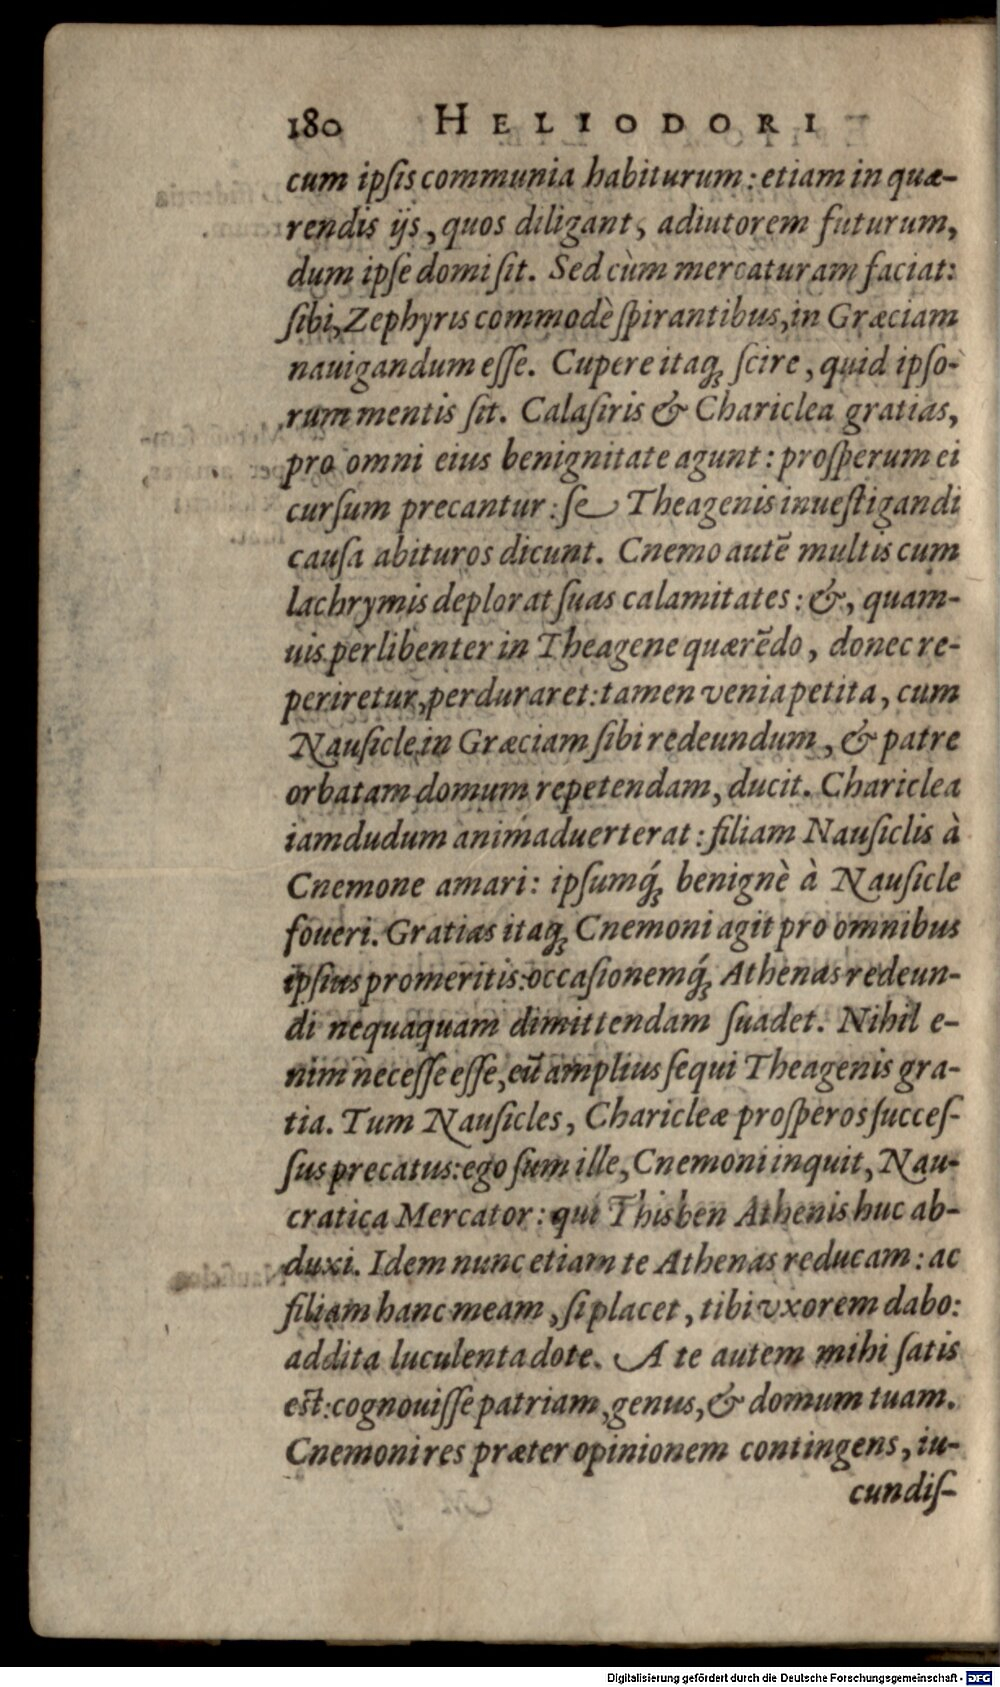 180 HELIODORI
cum ipſis communia habiturum: etiam in quæ-
rendis ijs, quos diligant, adiutorem futurum,
dum ipſe domi ſit. Sed cùm mercaturam faciat:
ſibi, Zephyris commodè ſpirantibus, in Græciam
nauigandum eſſe. Cupere itaq; ſcire, quid ipſo-
rum mentis ſit. Calaſiris & Chariclea gratias,
pro omni eius benignitate agunt: proſperum ei
curſum precantur: ſe Theagenis inueſtigandi
cauſa abituros dicunt. Cnemo autē multis cum
lachrymis deplorat ſuas calamitates: &, quam-
uis perlibenter in Theagene quærēdo, donec re-
periretur, perduraret: tamen venia petita, cum
Nauſicle in Græciam ſibi redeundum, & patre
orbatam domum repetendam, ducit. Chariclea
iamdudum animaduerterat: filiam Nauſiclis à
Cnemone amari: ipſumq́; benignè à Nauſicle
foueri. Gratias itaq; Cnemoni agit pro omnibus
ipſius promeritis: occaſionemq́; Athenas redeun-
di nequaquam dimittendam ſuadet. Nihil e-
nim neceſſe eſſe, eū amplius ſequi Theagenis gra-
tia. Tum Nauſicles, Charicleæ proſperos ſucceſ-
ſus precatus: ego ſum ille, Cnemoni inquit, Nau-
cratica Mercator: qui Thisben Athenis huc ab-
duxi. Idem nunc etiam te Athenas reducam: ac
filiam hanc meam, ſi placet, tibi vxorem dabo:
addita luculenta dote. A te autem mihi ſatis
eſt: cognouiſſe patriam, genus, & domum tuam.
Cnemoni res præter opinionem contingens, iu-
cundiſ-
Digitalisierung gefördert durch die Deutsche Forschungsgemeinschaft - DFG